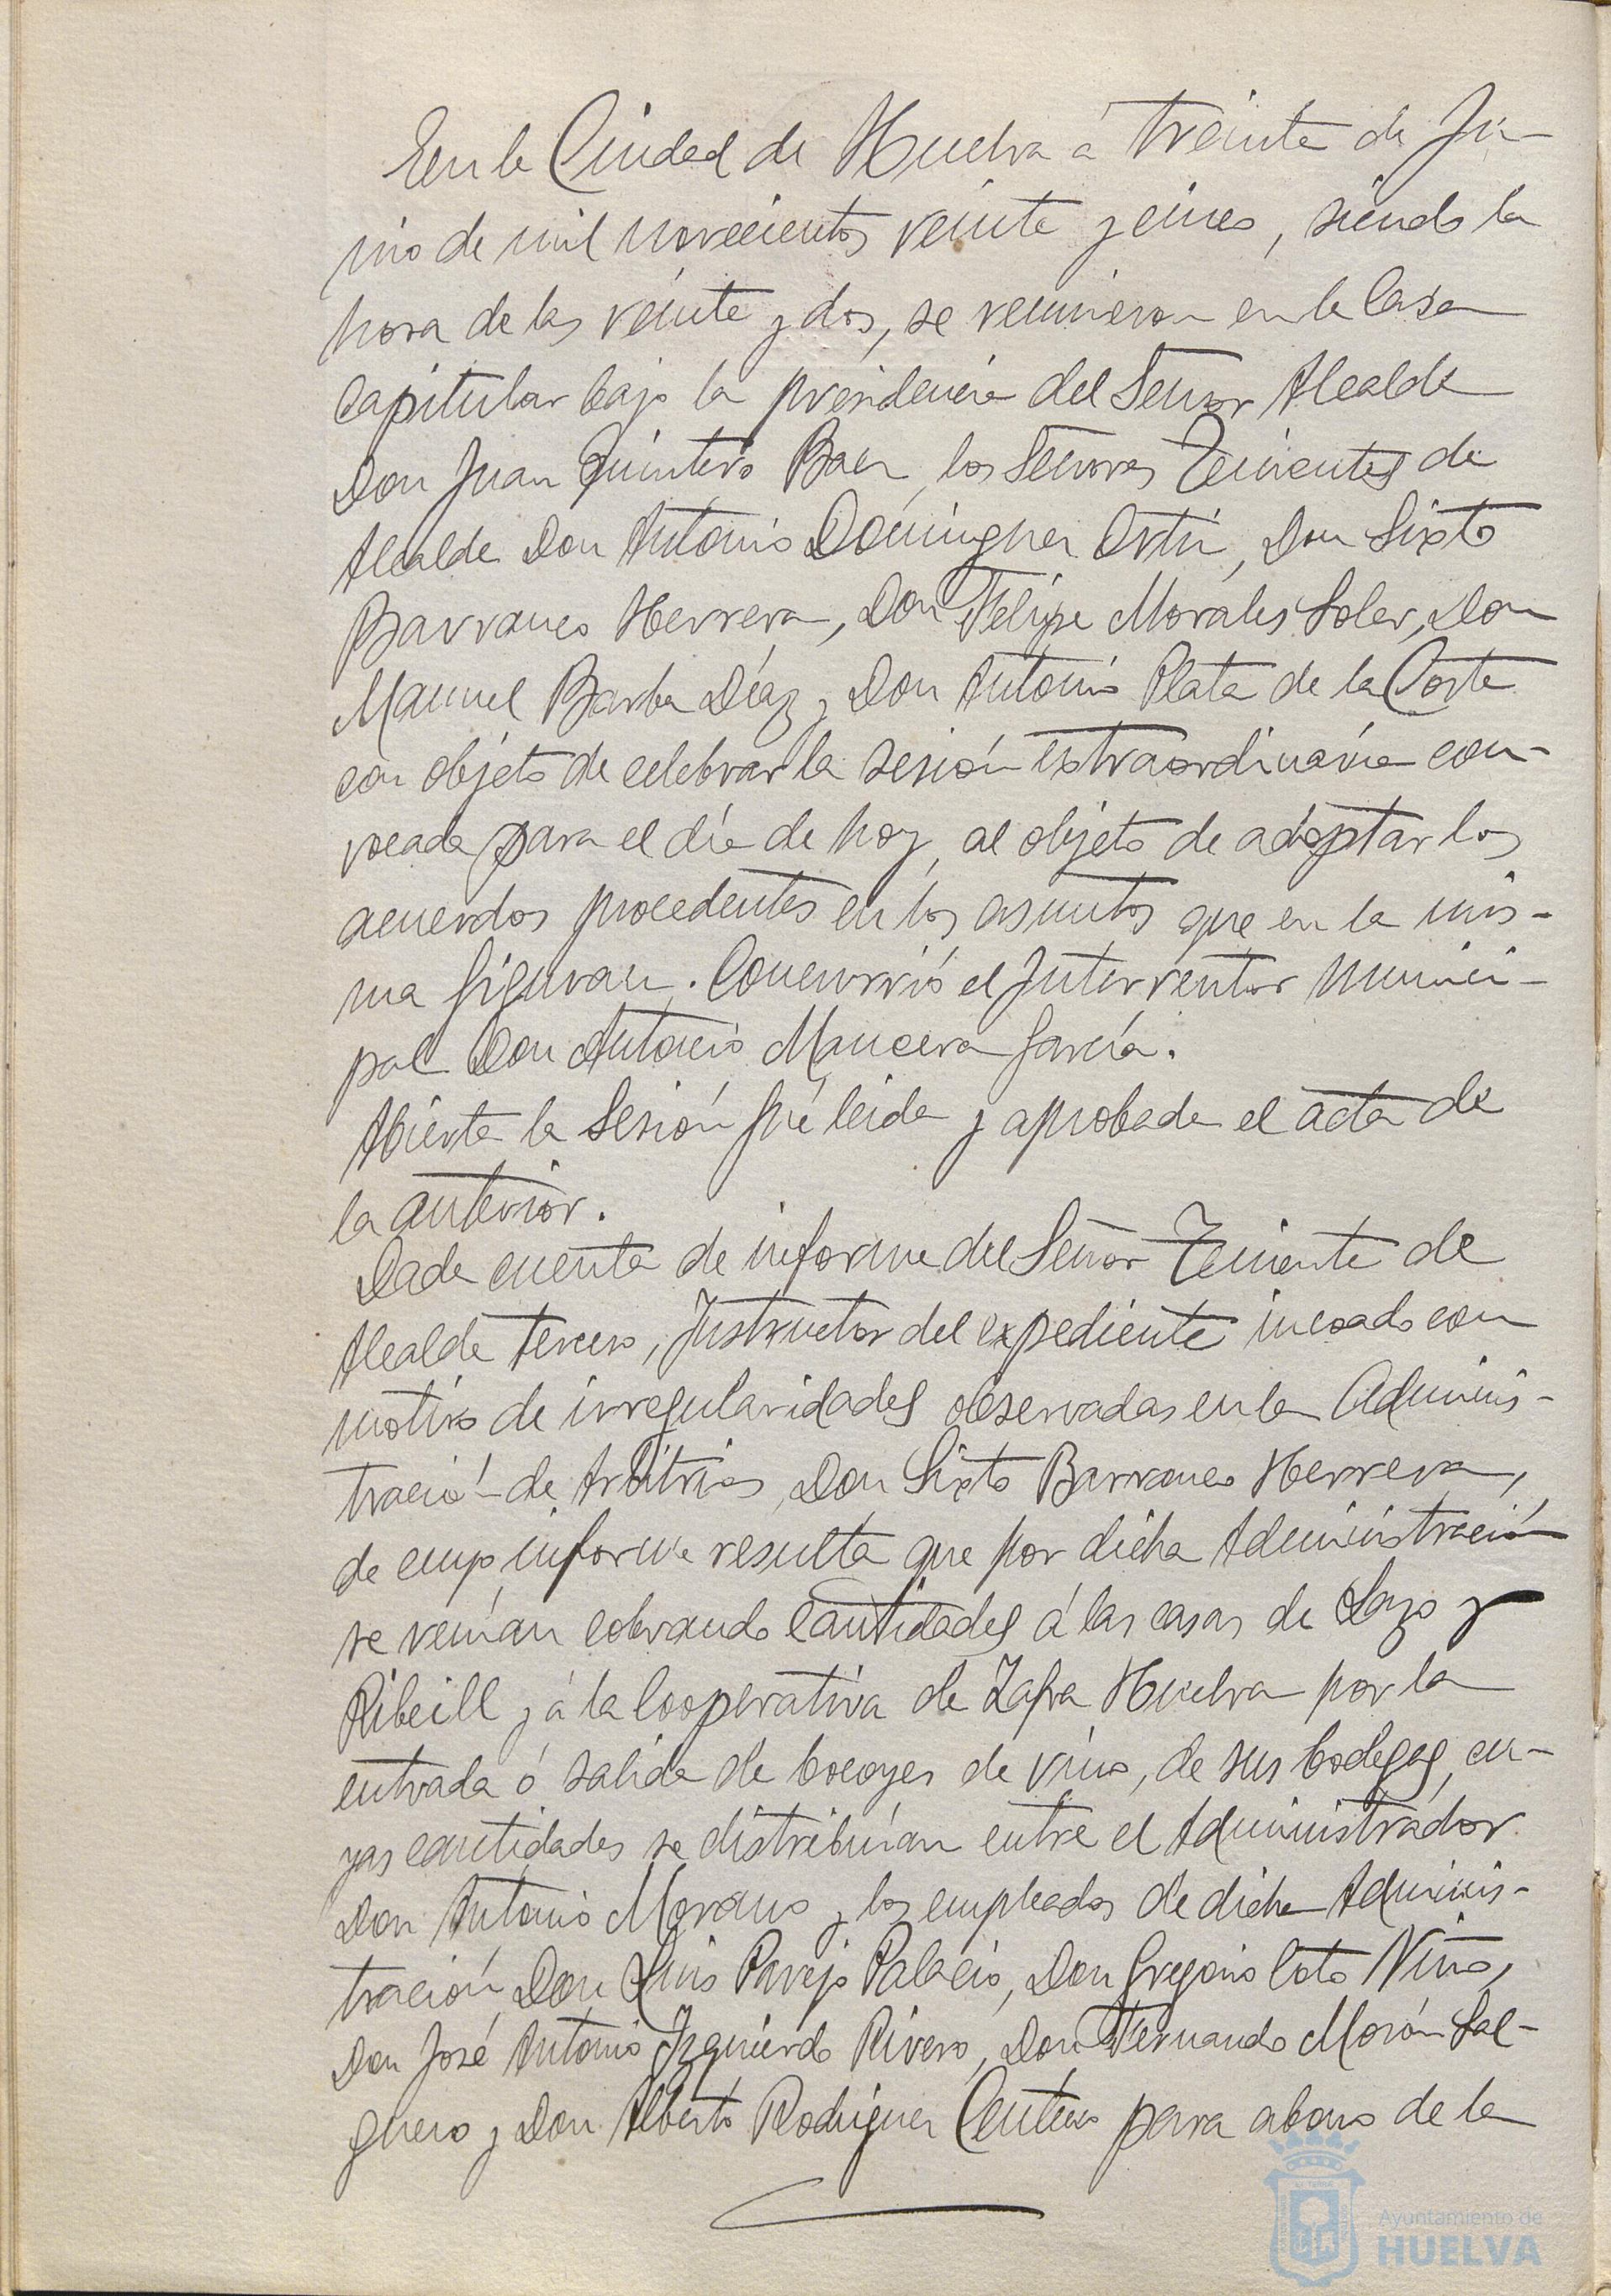 En la Ciudad de Huelva á treinta de Ju-
nio de mil novecientos veinte y cinco, siendo la
hora de las veinte y dos, se reunieron en la Casa
Capitular bajo la presidencia del Señor Alcalde
Don Juan Quintero Baez, los Señores Tenientes de
Alcalde Don Antonio Dominguez Ortíz, Don Sixto
Barranco Herrera, Don Felipe Morales Soler, Don
Manuel Barba Díaz y Don Antonio Plata de la Corte
con objeto de celebrar la sesión extraordinaria con-
vocada para el día de hoy, al objeto de adoptar los
acuerdos procedentes en los asuntos que en la mis-
ma figuran. Concurrió el Interventor munici-
pal Don Antonio Mancera García.
Abierta la Sesión fué leida y aprobada el acta de
la anterior.
Dada cuenta de informe del Señor Teniente de
Alcalde tercero, Instructor del expediente incoado con
motivo de irregularidades observadas en la Adminis-
tración de Arbitrios, Don Sixto Barranco Herrera,
de cuyo informe resulta que por dicha Administración
se venían cobrando cantidades á las casas de Lazo y
Ribeill y á la Cooperativa de Zafra Huelva por la
entrada ó salida de bocoyes de vino, de sus bodegas, cu-
yas cantidades se distribuían entre el Administrador
Don Antonio Morano y los empleados de dicha Adminis-
tración, Don Luis Parejo Palacio, Don Gregorio Coto Niño,
Don José Antonio Izquierdo Rivero, Don Fernando Morón Sal-
guero y Don Alberto Rodriguez Centeno para abono de la
Ayuntamiento de
HUELVA